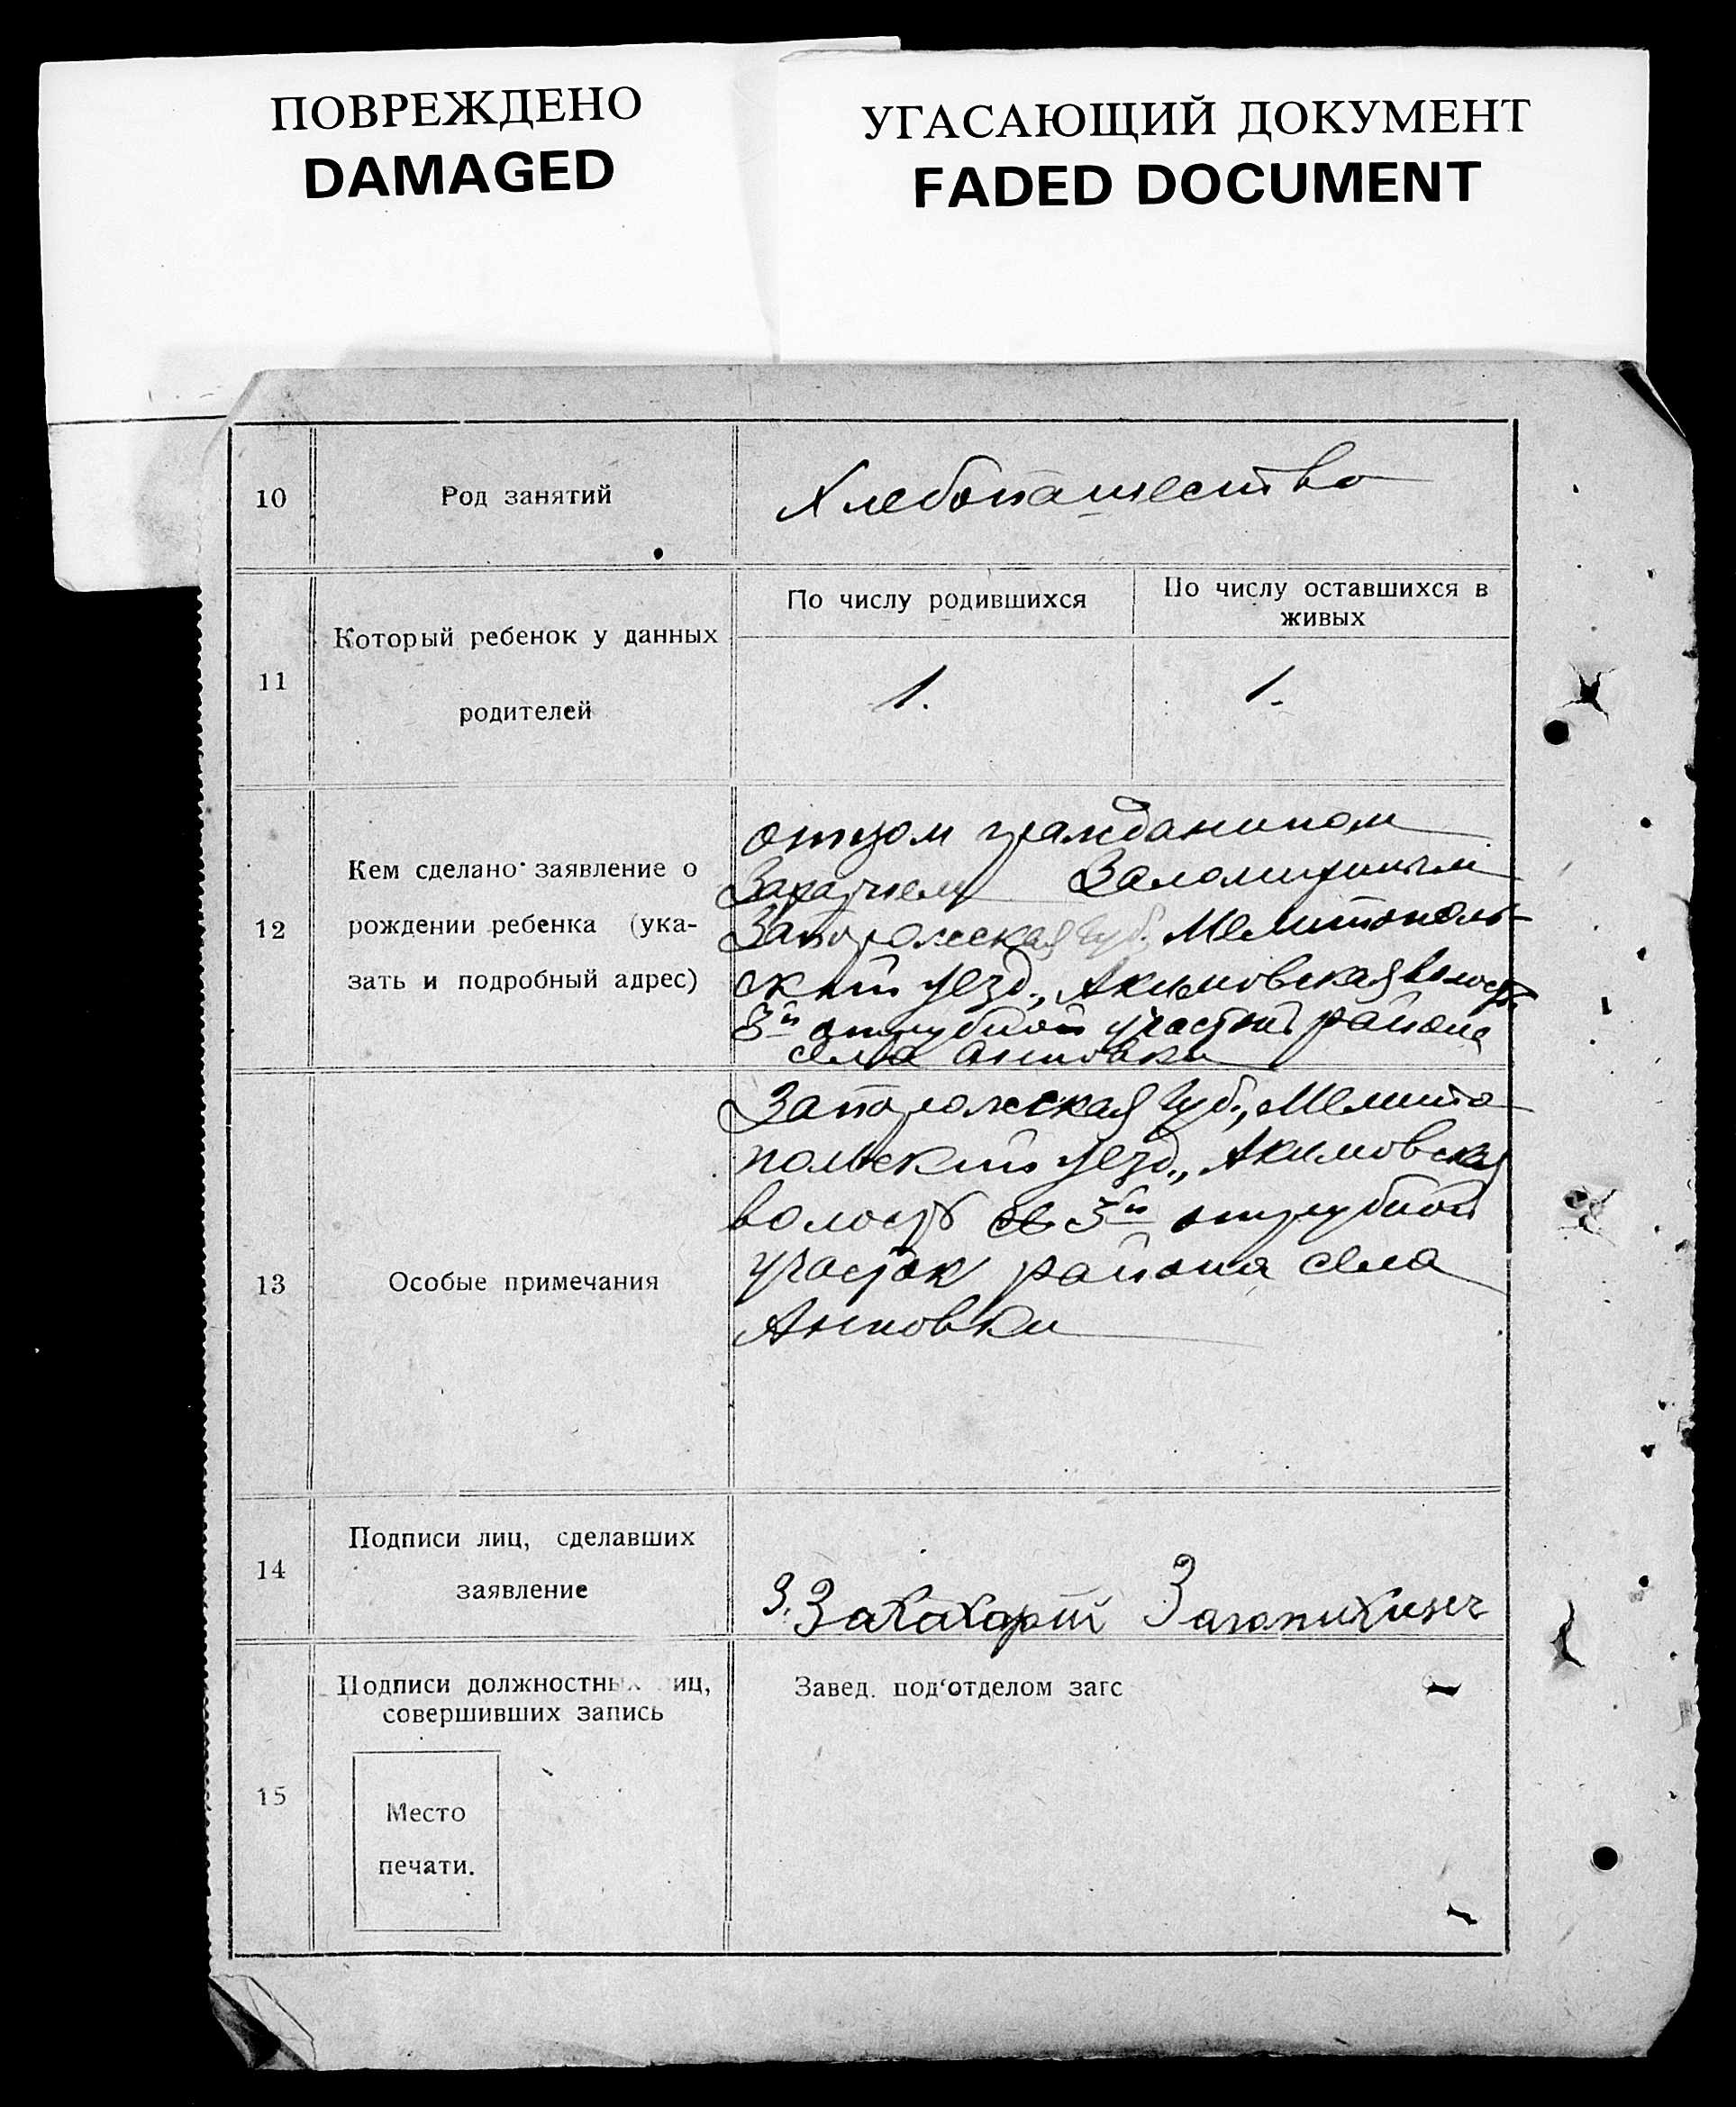 ПОВРЕЖДЕНО
DAMAGED
УГАСАЮЩИЙ ДОКУМЕНТ
FADED DOCUMENT
10
Род занятий
Хлебопашество
11
Который ребенок у данных
родителей
По числу родившихся
По числу оставшихся в
живых
1.
1.
12
Кем сделано заявление о
рождении ребенка (ука-
зать и подробный адрес)
отцом гражданином
Запорожская Губ. Мелитополь-
ский уезд., Акимовская волость
отрубной участок района
села Анновки
13
Особые примечания
Запорожская Губ., Мелито
польский уезд., Акимовская
волость отрубной
участок района села
Анновки
14
Подписи лиц, сделавших
заявление
15
Подписи должностных лиц,
совершивших запись
Завед. под'отделом загс
Место
печати.